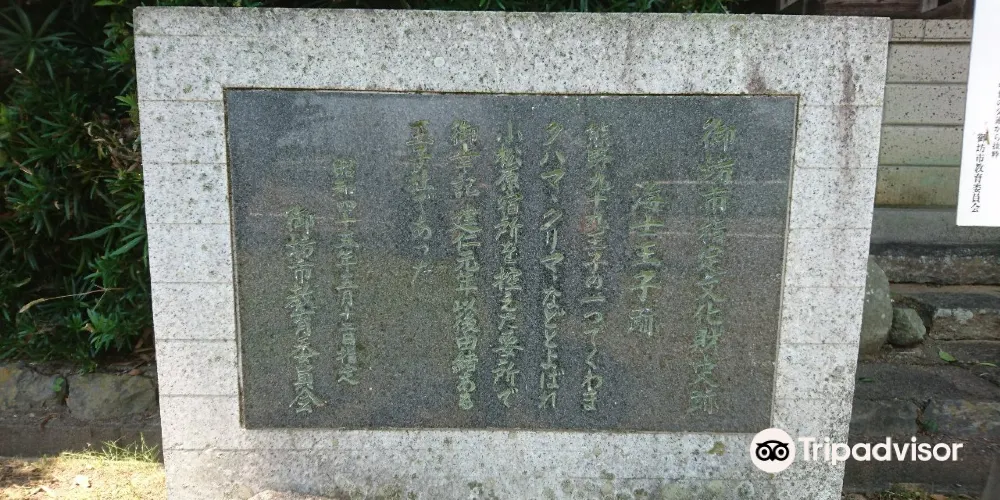 御坊市指定文化財史跡
海士王子跡
熊野九十九王子の一つでくわま
クハマ、クリマなどとよばれ
小松原宿所を控えた要所で
御幸記、建仁元年以後由緒ある
王子社であった
昭和四十五年三月十二日指定
御坊市教育委員会
御坊市教育委員会
Tripadvisor